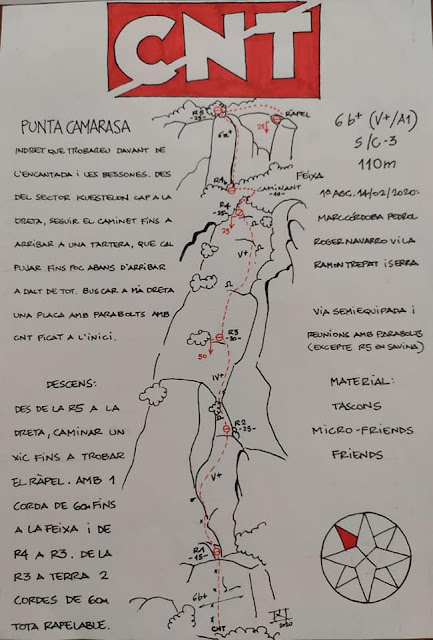 CNT
PUNTA CAMARASA
INDRET QUE TROBAREU DAVANT DE
L'ENCANTADA I LES BESSONES. DES
DEL SECTOR KUESTELON CAP A LA
DRETA, SEGUIR EL CAMINET FINS A
ARRIBAR A UNA TARTERA, QUE CAL
PUJAR FINS POC ABANS D'ARRIBAR
A DALT DE TOT. BUSCAR A MÀ DRETA
UNA PLACA AMB PARABOLTS AMB
CNT FICAT A L'INICI.
DESCENS:
DES DE LA R5 A LA
DRETA, CAMINAR UN
XIC FINS A TROBAR
EL RÀPEL. AMB 1
CORDA DE 60m FINS
A LA FEIXA I DE
R4 A R3. DE LA
R3 A TERRA 2
CORDES DE 60m
TOTA RAPELABLE.
R5
-25-
RÀPEL
25
R4
CAMINANT
-10-
FEIXA
R4
-25-
25
V+
R3
-20-
50
IV+
R2
-25-
V+
R1
-15-
6b+
CNT
2020
6b+ (V+/A1)
S/C-3
110m
1ª ASC. 14/02/2020:
MARC CÓRDOBA PEDROL
ROGER NAVARRO VILA
RAMON TREPAT I SERRA
VIA SEMIEQUIPADA I
REUNIONS AMB PARABOLTS
(EXCEPTE R5 EN SAVINA)
MATERIAL:
TASCONS
MICRO-FRIENDS
FRIENDS